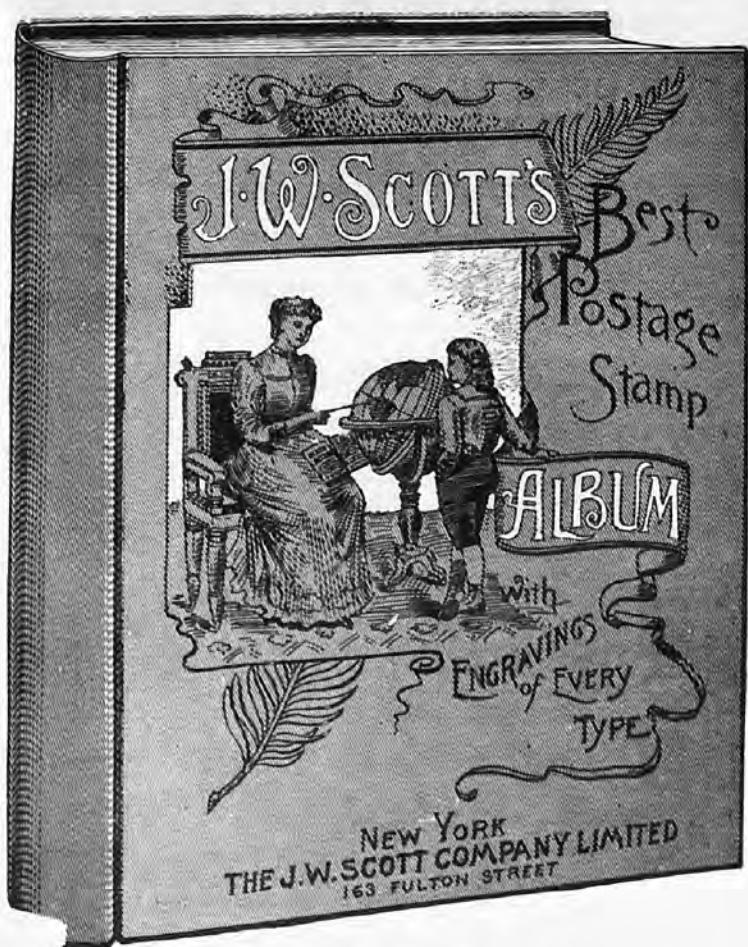 J·W·SCOTT'S
Best
Postage
Stamp
ALBUM
with
ENGRAVINGS
of EVERY
TYPE
NEW YORK
THE J.W. SCOTT COMPANY LIMITED
163 FULTON STREET